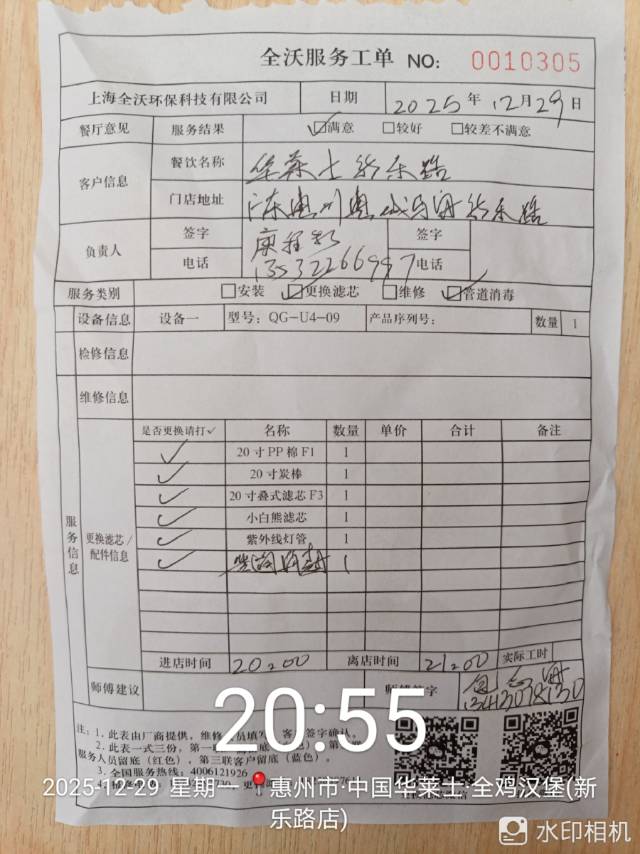 全沃服务工单 NO: 0010305
上海全沃环保科技有限公司 日期 2025年12月29日
餐厅意见 服务结果 ☑满意 □较好 □较差不满意
客户信息 餐饮名称 华莱士新乐路
门店地址 广东惠州惠城马安新乐路
负责人 签字 签字
电话 13532266997 电话
服务类别 □安装 ☑更换滤芯 □维修 ☑管道消毒
设备信息 设备一 型号: QG-U4-09 产品序列号: 数量 1
检修信息
维修信息
服务信息 更换滤芯/配件信息
是否更换请打✓ 名称 数量 单价 合计 备注
✓ 20寸PP棉F1 1
✓ 20寸炭棒 1
✓ 20寸叠式滤芯F3 1
✓ 小白熊滤芯 1
✓ 紫外线灯管 1
✓ 管道消毒 1
进店时间 20:00 离店时间 21:00 实际工时
师傅建议 师傅签字
20:55
注: 1. 此表由厂商提供, 维修 签字确认。
2. 此表一式三份, 第一
务人员留底(红色), 第三联客户留底(蓝色)。
3. 全国服务热线: 4006121926
2025-12-29 星期一 惠州市·中国华莱士·全鸡汉堡(新
乐路店)
水印相机